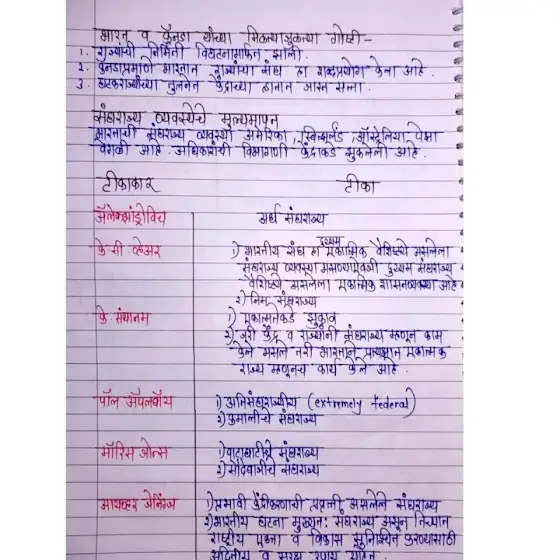 भारत व कॅनडा यांच्या मिळत्याजुळत्या गोष्टी-
1. राज्यांची निर्मिती विघटनामार्फत झाली.
2. कॅनडाप्रमाणे भारतात राज्यांचा संघ हा शब्दप्रयोग केला आहे.
3. घटकराज्यांच्या तुलनेत केंद्राच्या हातात जास्त सत्ता.
संघराज्य व्यवस्थेचे मूल्यमापन
भारताची संघराज्य व्यवस्था अमेरिका, स्वित्झर्लंड, ऑस्ट्रेलिया पेक्षा
वेगळी आहे. अधिकारांची विभागणी केंद्राकडे झुकलेली आहे.
टीकाकार टीका
अॅलेक्झांड्रोविच अर्ध संघराज्य
के. सी. व्हेअर 1) भारतीय संघ हा दुय्यम एकात्मिक वैशिष्ट्ये असलेला
संघराज्य व्यवस्था असण्याऐवजी दुय्यम संघराज्य
वैशिष्ट्ये असलेला एकात्मिक शासनव्यवस्था आहे
2) निम संघराज्य
के. संथानम 1) एकात्मतेकडे झुकाव
2) जरी केंद्र व राज्यांनी संघराज्य म्हणून काम
केले असले तरी भारताने प्रत्यक्षात एकात्मक
राज्य म्हणूनच कार्य केले आहे.
पॉल अॅपलबॉय 1) अतिसंघराज्यीय (extremely federal)
2) कमालीचे संघराज्य
मॉरिस जोन्स 1) वाटाघाटीचे संघराज्य
2) सौदेबाजीचे संघराज्य
आयव्हर जेनिंग्ज 1) प्रभावी केंद्रीकरणाची प्रवृत्ती असलेले संघराज्य
2) भारतीय घटना मुख्यतः संघराज्य असून तिच्यात
राष्ट्रीय एकता व विकास सुनिश्चित करण्यासाठी
अद्वितीय व सुरक्षा उपाय आहेत.